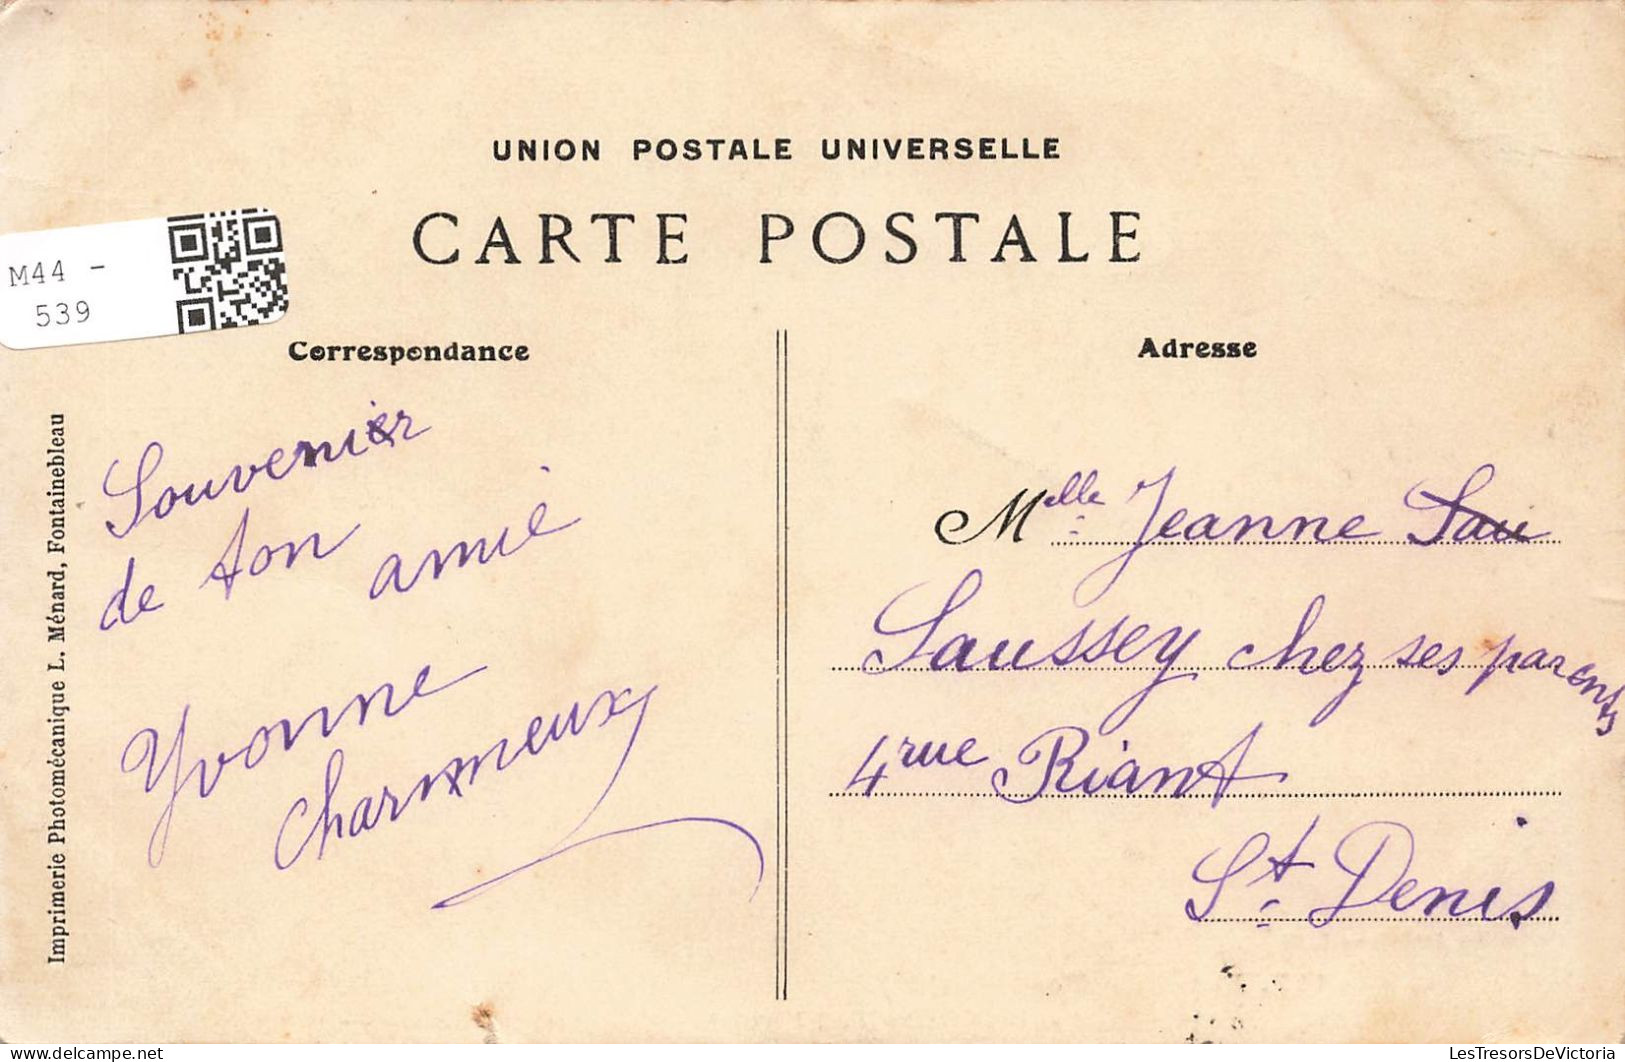 UNION POSTALE UNIVERSELLE
CARTE POSTALE
M44 -
539
Correspondance
Adresse
Imprimerie Photomécanique L. Ménard, Fontainebleau
Souvenier
de ton amie
Yvonne
Charmeux
Melle Jeanne Sau
Saussey chez ses parents
4 rue Riant
St. Denis
delcampe.net
LesTresorsDeVictoria